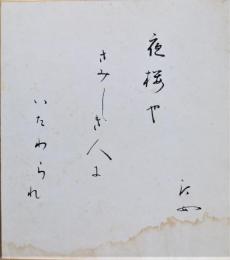 夜桜や
さみしき人に
いたわられ